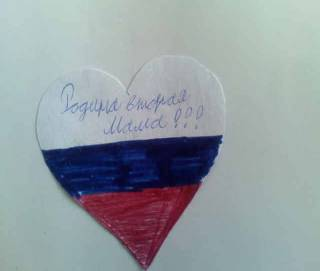 Родина вторая
Мама!!!